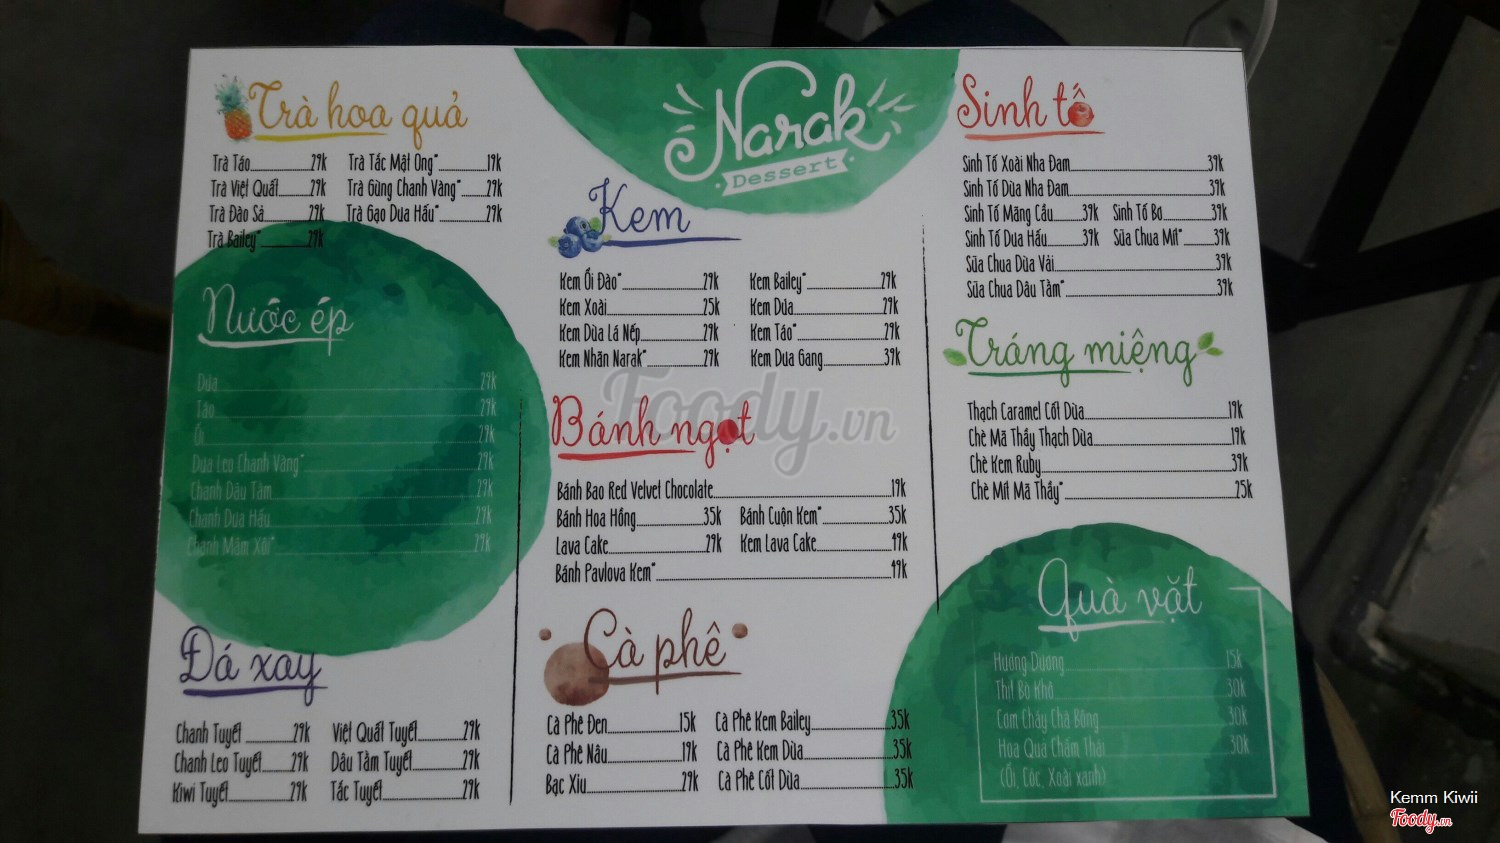 Trà hoa quả
Trà Táo 29k Trà Tắc Mật Ong* 19k
Trà Việt Quất 29k Trà Gừng Chanh Vàng* 29k
Trà Đào Sả 29k Trà Gạo Dưa Hấu* 29k
Trà Bailey* 29k
Nước ép
Dứa 29k
Táo 29k
Ổi 29k
Dưa Leo Chanh Vàng* 29k
Chanh Dâu Tằm 29k
Chanh Dưa Hấu 29k
Chanh Mâm Xôi* 29k
Đá xay
Chanh Tuyết 29k Việt Quất Tuyết 29k
Chanh Leo Tuyết 29k Dâu Tằm Tuyết 29k
Kiwi Tuyết 29k Tắc Tuyết 29k
Narak
Dessert
Kem
Kem Ổi Đào* 29k Kem Bailey* 29k
Kem Xoài 25k Kem Dứa 29k
Kem Dừa Lá Nếp 29k Kem Táo* 29k
Kem Nhãn Narak* 29k Kem Dưa Gang 39k
Bánh ngọt
Bánh Bao Red Velvet Chocolate 19k
Bánh Hoa Hồng 35k Bánh Cuộn Kem* 35k
Lava Cake 29k Kem Lava Cake 49k
Bánh Pavlova Kem* 49k
Cà phê
Cà Phê Đen 15k Cà Phê Kem Bailey 35k
Cà Phê Nâu 19k Cà Phê Kem Dừa 35k
Bạc Xỉu 29k Cà Phê Cốt Dừa 35k
Sinh tố
Sinh Tố Xoài Nha Đam 39k
Sinh Tố Dừa Nha Đam 39k
Sinh Tố Mãng Cầu 39k Sinh Tố Bơ 39k
Sinh Tố Dưa Hấu 39k Sữa Chua Mít* 39k
Sữa Chua Dừa Vải 39k
Sữa Chua Dâu Tằm* 39k
Tráng miệng
Thạch Caramel Cốt Dừa 19k
Chè Mã Thầy Thạch Dừa 19k
Chè Kem Ruby 39k
Chè Mít Mã Thầy* 25k
Quà vặt
Hướng Dương 15k
Thịt Bò Khô 30k
Cơm Cháy Chà Bông 30k
Hoa Quả Chấm Thái 30k
(Ổi, Cóc, Xoài xanh)
Foody.vn
Kemm Kiwii
Foody.vn